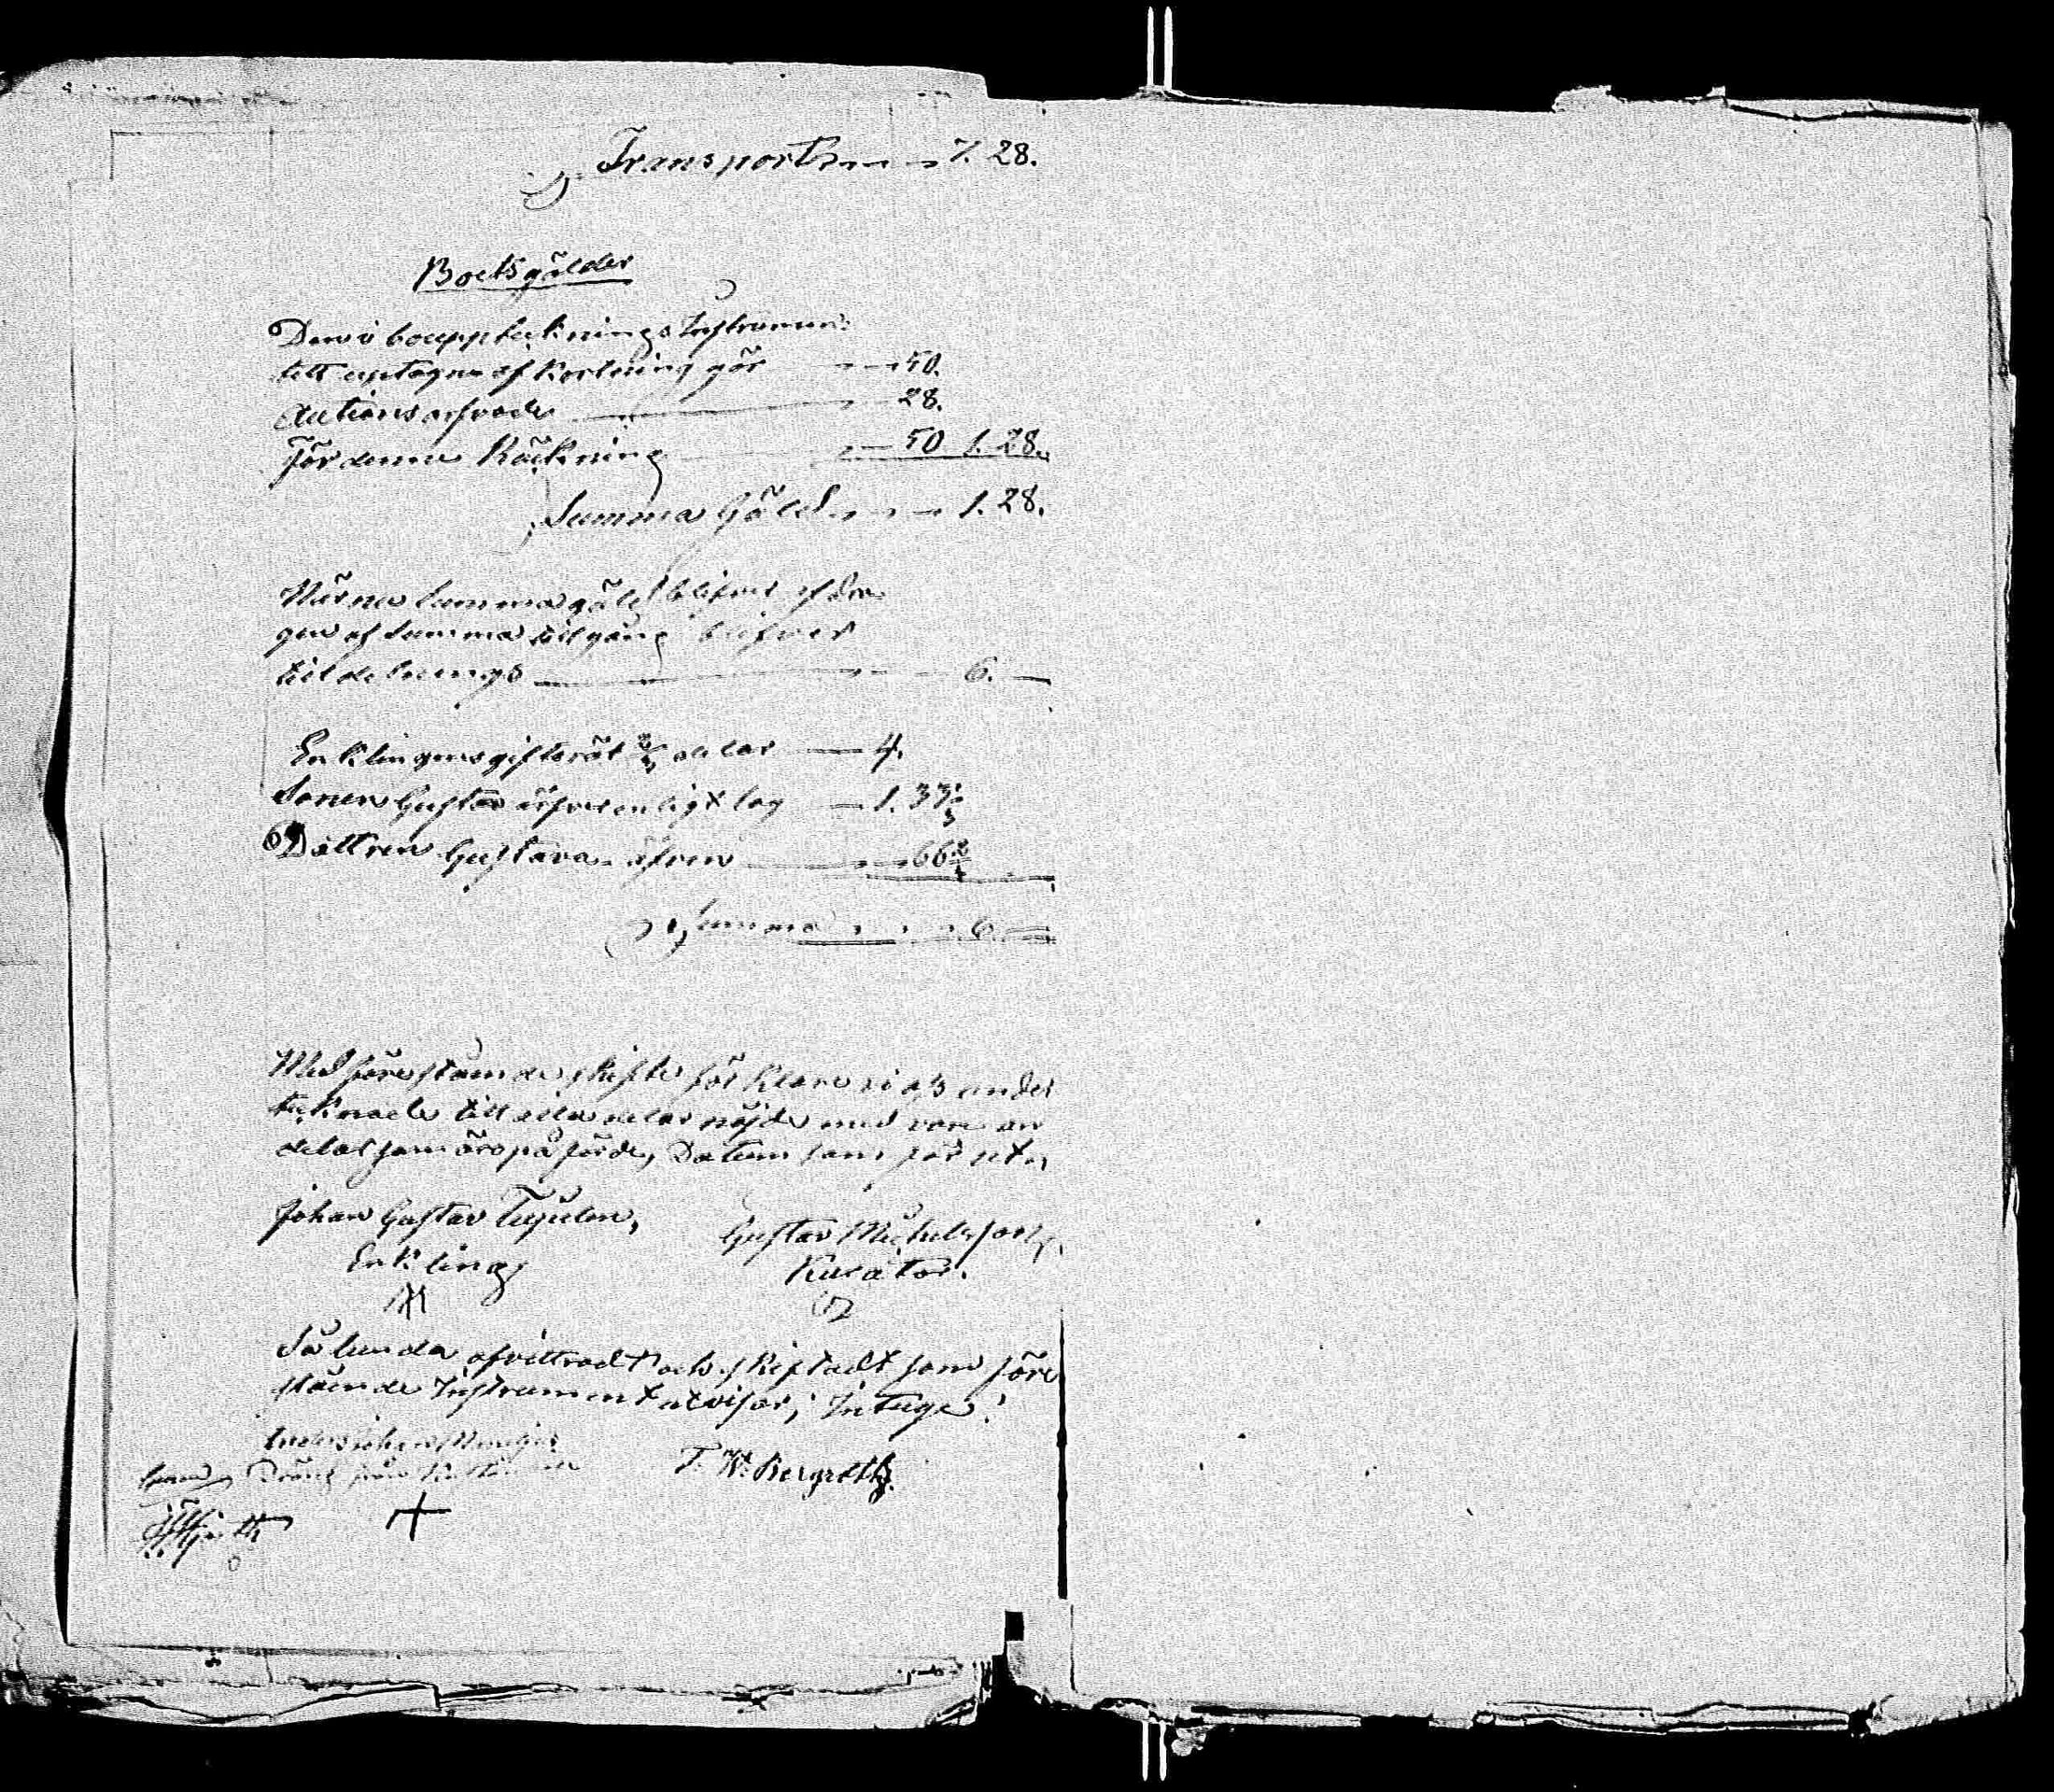 Transport 7. 28.
Boets gälder
Den i bouppteknings Instrumen
tett uptagne afkortning gör 50.
Auctions arfvode 28.
För denne Räkning 50 1. 28.
Summa Gäld 1. 28.
När nu summa gäld blifver afdra
gen af summa tillgång blifver
till delnings 6. —
Enklingens giftorät 2/3 delar 4.
Sonen Gustav ärfver enligt lag 1. 33 1/3
Dottren Gustava äfven 66 2/3
Summa 6. —
Med förestående skifte förklare vi oss under
teknade till alla delar nöjde med våre an
delar som äro påförde, Datum som förut,
Johan Gustav
Enkling
Gustav Michelsson,
Kurator.
Sålunda afvittradt och skiftadt som före
stående Instrument utvisar; Intyga:
Anders Johan
Dräng från
T. W. Bergroth